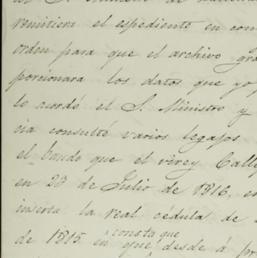 remitiera el espediente en con
orden para que el archivo
porcionara los datos que yo
le acordé el S. Ministro y
cia consulté varios legajos
el bando que el virey Calle
en 23 de Julio de 1816, en
inserta la real cédula de
de 1815 consta que
en que desde á